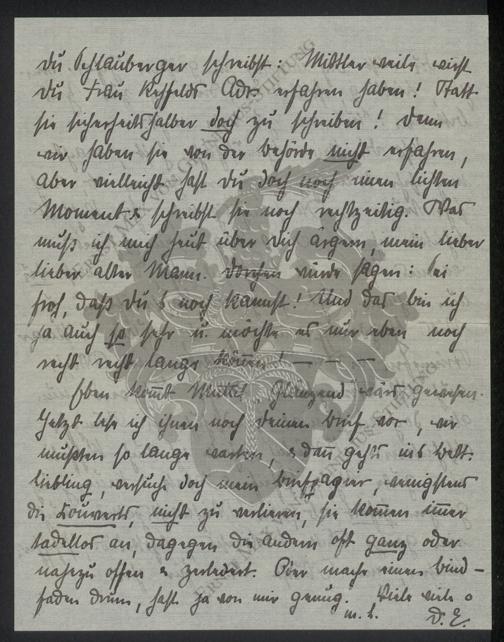 Du Schlauberger schreibst: Mittlerweile wirst
Du Frau Rehfelds Adr. erfahren haben! Statt
sie sicherheitshalber doch zu schreiben! Denn
wir haben sie von der Behörde nicht erfahren,
aber vielleicht hast Du doch noch einen lichten
Moment & schreibst sie noch rechtzeitig. Was
muß ich mich heut über Dich ärgern, mein lieber
lieber alter Mann. Dorchen würde sagen: sei
froh, daß Du's noch kannst! Und das bin ich
ja auch so sehr u. möchte es nur eben noch
recht recht lange können! — — —
Eben kommt Mutti. Glänzend wär's gewesen.
Jetzt lese ich ihnen noch deinen Brief vor, wir
mußten so lange warten, & dann geht's ins Bett.
Liebling, versuche doch mein Briefpapier, wenigstens
die Kouverts, nicht zu verlieren, sie kommen immer
tadellos an, dagegen die andern oft ganz oder
nahezu offen & zerledert. Oder mache einen Bind-
faden drum, hast ja von mir genug. Viele viele
D. E.